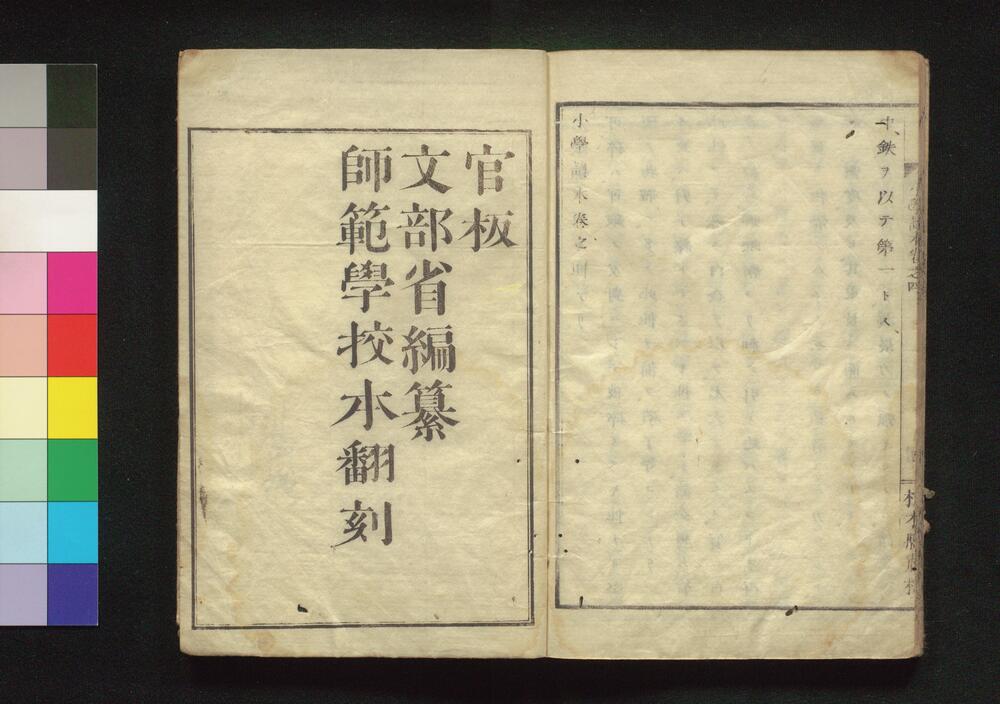 中、鉄ヲ以テ第一トス、
小學讀本卷之四
官板
文部省編纂
師範學校本翻刻